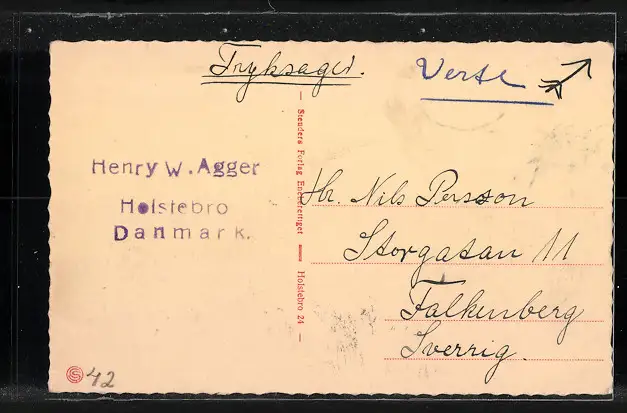 Tryksager.
Verte
Henry W. Agger
Holstebro
Danmark.
— Stenders Forlag Eneberettiget — Holstebro 24 —
Hr. Nils Persson
Storgatan 11
Falkenberg
Sverrig.
S 42